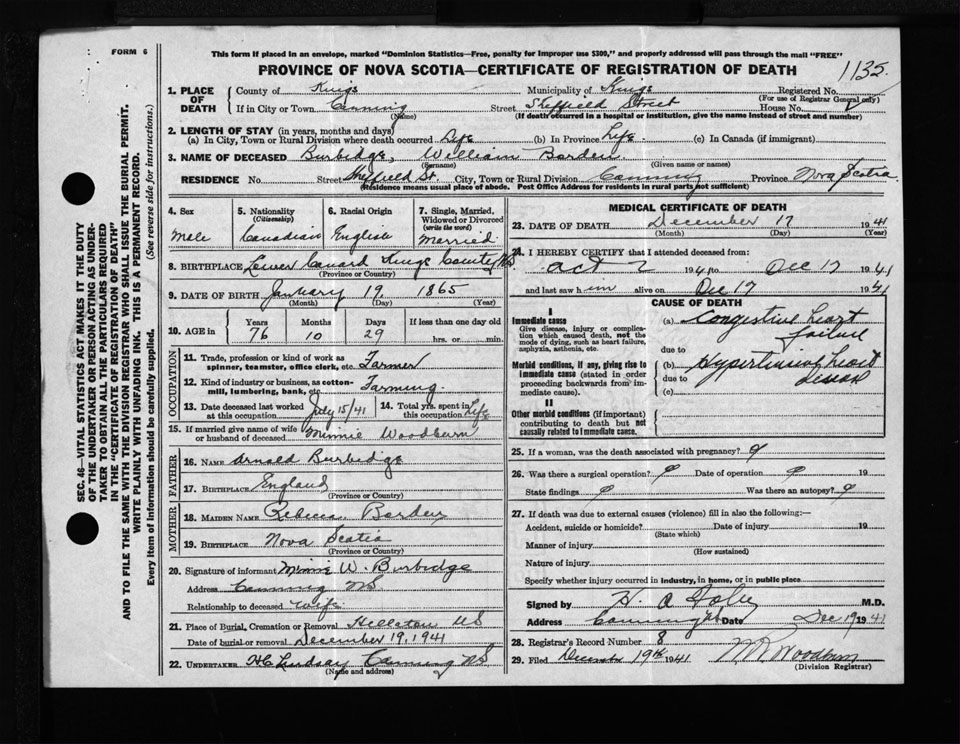 FORM 6
This form if placed in an envelope, marked "Dominion Statistics—Free, penalty for improper use $300," and properly addressed will pass through the mail "FREE"
PROVINCE OF NOVA SCOTIA—CERTIFICATE OF REGISTRATION OF DEATH
1135
1. PLACE OF DEATH
County of Kings Municipality of Kings Registered No.
(For use of Registrar General only)
If in City or Town Canning Street Sheffield Street House No.
(Name) (If death occurred in a hospital or institution, give the name instead of street and number)
2. LENGTH OF STAY (in years, months and days)
(a) In City, Town or Rural Division where death occurred Life (b) In Province Life (c) In Canada (if immigrant)
3. NAME OF DECEASED Burbidge, William Borden
(Surname) (Given name or names)
RESIDENCE No. Street Sheffield St. City, Town or Rural Division Canning Province Nova Scotia
(Residence means usual place of abode. Post Office Address for residents in rural parts not sufficient)
4. Sex
Male
5. Nationality (Citizenship)
Canadian
6. Racial Origin
English
7. Single, Married, Widowed or Divorced (write the word)
Married
8. BIRTHPLACE Lower Canard Kings County NS
(Province or Country)
9. DATE OF BIRTH January 19, 1865
(Month) (Day) (Year)
10. AGE in
Years Months Days If less than one day old
76 10 29 hrs. or min.
OCCUPATION
11. Trade, profession or kind of work as spinner, teamster, office clerk, etc. Farmer
12. Kind of industry or business, as cotton-mill, lumbering, bank, etc. Farming
13. Date deceased last worked at this occupation July 15/41
14. Total yrs. spent in this occupation Life
15. If married give name of wife or husband of deceased Minnie Woodburn
FATHER
16. NAME Arnold Burbidge
17. BIRTHPLACE England
(Province or Country)
MOTHER
18. MAIDEN NAME Rebecca Borden
19. BIRTHPLACE Nova Scotia
(Province or Country)
20. Signature of informant Minnie W. Burbidge
Address Canning NS
Relationship to deceased Wife
21. Place of Burial, Cremation or Removal NS
Date of burial or removal December 19, 1941
22. UNDERTAKER HC Lindsay Canning NS
(Name and address)
MEDICAL CERTIFICATE OF DEATH
23. DATE OF DEATH December 17 1941
(Month) (Day) (Year)
24. I HEREBY CERTIFY that I attended deceased from:
Oct 2 1941 to Dec 17 1941
and last saw him alive on Dec 17 1941
CAUSE OF DEATH
I
Immediate cause
Give disease, injury or complication which caused death, not the mode of dying, such as heart failure, asphyxia, asthenia, etc.
(a) Congestive heart failure
due to
Morbid conditions, if any, giving rise to immediate cause (stated in order proceeding backwards from immediate cause)
(b) Hypertensive heart disease
due to
(c)
II
Other morbid conditions (if important) contributing to death but not causally related to immediate cause.
25. If a woman, was the death associated with pregnancy?
26. Was there a surgical operation? Date of operation 19
State findings Was there an autopsy?
27. If death was due to external causes (violence) fill in also the following:—
Accident, suicide or homicide? Date of injury 19
(State which)
Manner of injury
(How sustained)
Nature of injury
Specify whether injury occurred in industry, in home, or in public place
Signed by H. A M.D.
Address Canning NS Date Dec 19 1941
28. Registrar's Record Number 8
29. Filed December 19th 1941 Woodburn
(Division Registrar)
SEC. 46—VITAL STATISTICS ACT MAKES IT THE DUTY
OF THE UNDERTAKER OR PERSON ACTING AS UNDER-
TAKER TO OBTAIN ALL THE PARTICULARS REQUIRED
IN THE "CERTIFICATE OF REGISTRATION OF DEATH"
AND TO FILE THE SAME WITH THE DIVISION REGISTRAR WHO SHALL ISSUE THE BURIAL PERMIT.
WRITE PLAINLY WITH UNFADING INK. THIS IS A PERMANENT RECORD.
Every item of information should be carefully supplied. (See reverse side for instructions.)